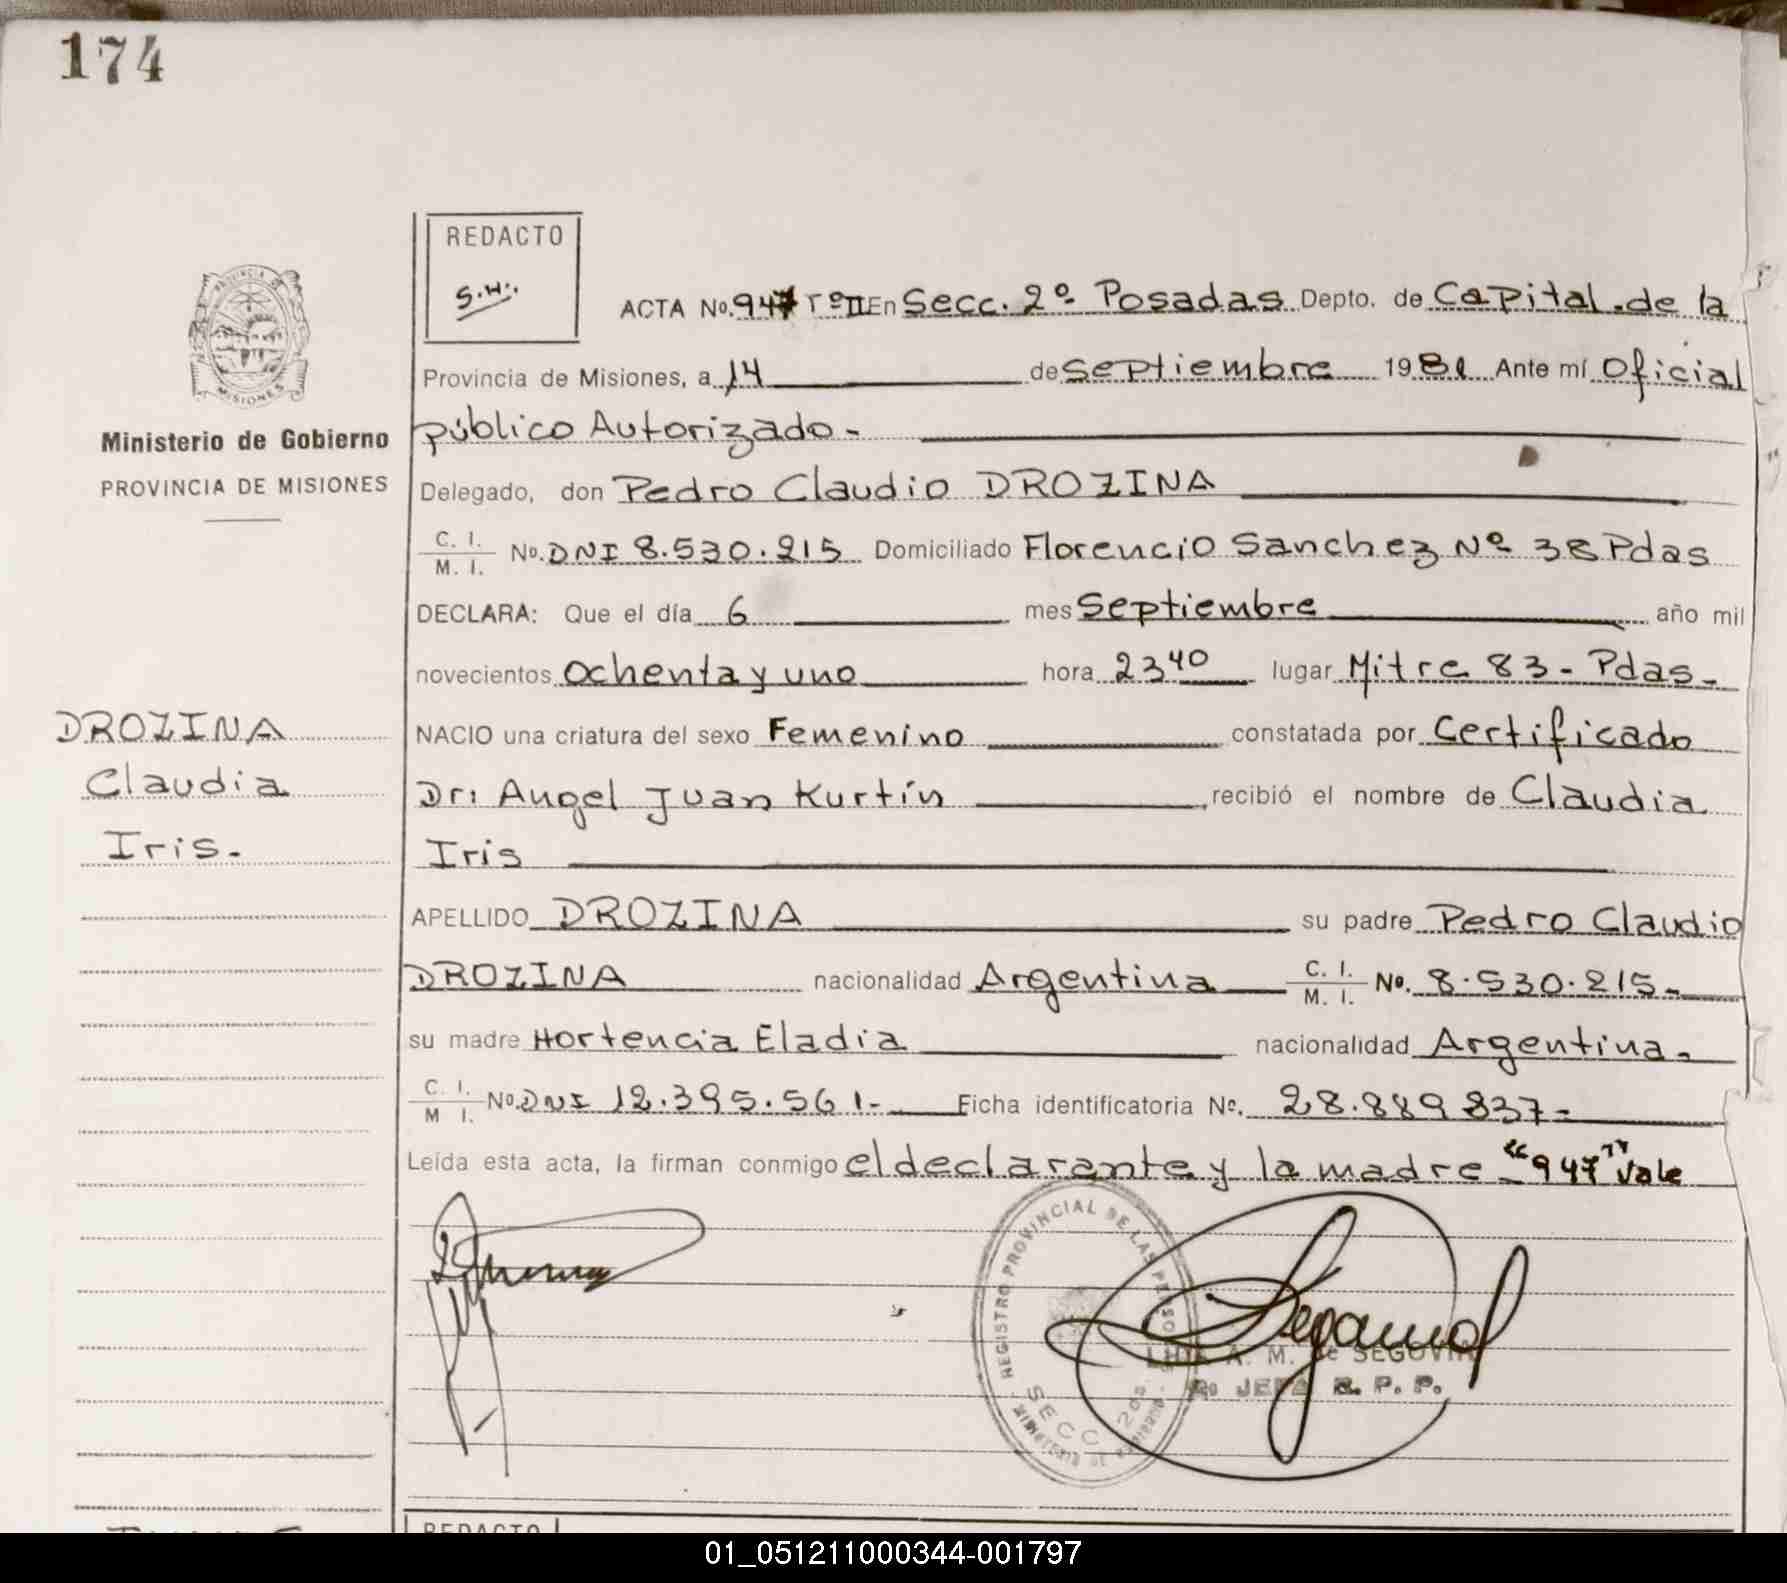 174
REDACTO
S.H.
ACTA No. 947 TºII En Secc. 2º Posadas Depto. de Capital.de la
Provincia de Misiones, a 14 de Septiembre 1981 Ante mí Oficial
público Autorizado-
Delegado, don Pedro Claudio DROZINA
C. I.
M. I. No. DNI 8.530.215 Domiciliado Florencio Sanchez Nº 38 Pdas
DECLARA: Que el día 6 mes Septiembre año mil
novecientos Ochenta y uno hora 23 40 lugar Mitre 83 - Pdas.
NACIO una criatura del sexo Femenino constatada por Certificado
Dr: Angel Juan Kurtín , recibió el nombre de Claudia
Iris
APELLIDO DROZINA su padre Pedro Claudio
DROZINA nacionalidad Argentina C. I.
M. I. No. 8.530.215-
su madre Hortencia Eladia nacionalidad Argentina.
C. I.
M I. No. DNI 12.395.561.- Ficha identificatoria No. 28.889837-
Leída esta acta, la firman conmigo el declarante y la madre - "947" Vale
PROVINCIA DE
MISIONES
Ministerio de Gobierno
PROVINCIA DE MISIONES
DROZINA
Claudia
Iris.
REGISTRO PROVINCIAL DE LAS PERSONAS
SECC 2da.
A. M. de SEGOVIA
JEFA R. P. P.
REDACTO
01_051211000344-001797